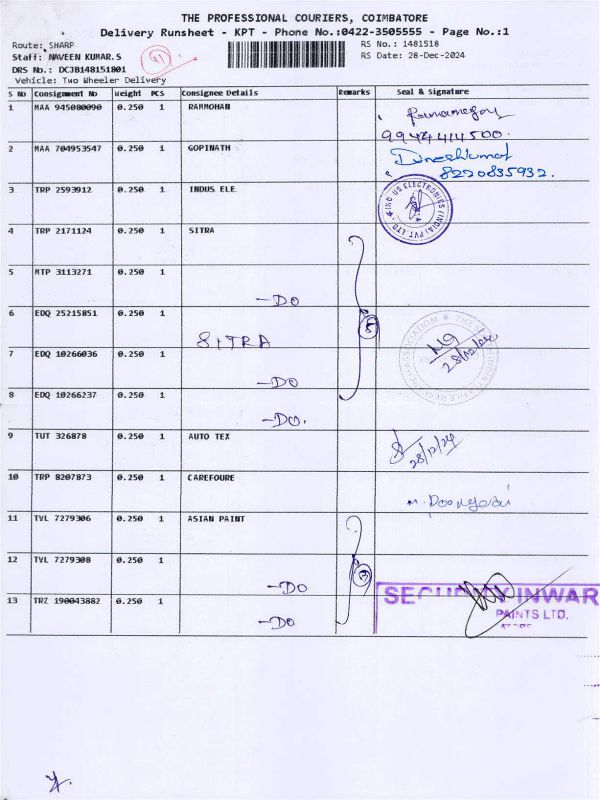 THE PROFESSIONAL COURIERS, COIMBATORE
Delivery Runsheet - KPT - Phone No.:0422-3505555 - Page No.:1
Route: SHARP
RS No.: 1481518
Staff: NAVEEN KUMAR.S
RS Date: 28-Dec-2024
DRS No.: DCJB148151801
Vehicle: Two Wheeler Delivery
S No Consignment No Weight PCS Consignee Details Remarks Seal & Signature
1 MAA 945080090 0.250 1 RAMMOHAN
9944414500
2 MAA 704953547 0.250 1 GOPINATH Dineshkumar
8220835932.
3 TRP 2593912 0.250 1 INDUS ELE INDUS ELECTRONICS (INDIA) PVT. LTD.
4 TRP 2171124 0.250 1 SITRA
5 MTP 3113271 0.250 1
-DO
6 EDQ 25215851 0.250 1
SITRA
28/12/24
7 EDQ 10266036 0.250 1
-DO
8 EDQ 10266237 0.250 1
-DO.
9 TUT 326878 0.250 1 AUTO TEX
28/12/24
10 TRP 8207873 0.250 1 CAREFOURE
11 TVL 7279306 0.250 1 ASIAN PAINT
12 TVL 7279308 0.250 1
-DO
SECURITY INWAR
13 TRZ 190043882 0.250 1
PAINTS LTD.
-DO